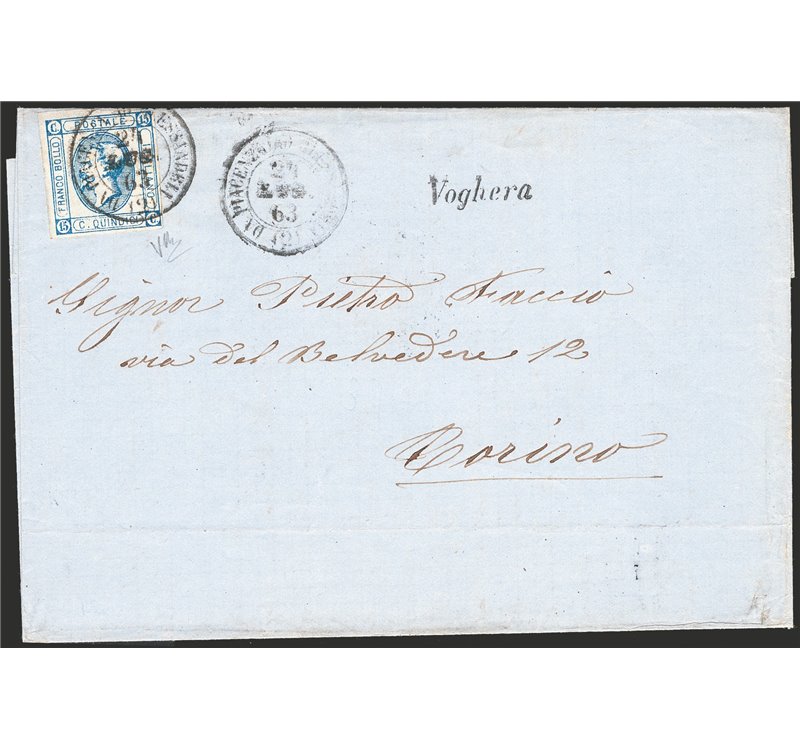 C. 15
POSTALE
FRANCO BOLLO
15 C. QUINDICI C.
DI PIACENZA
24
LUG.
63
Voghera
Signor Pietro Faccio
via del Belvedere 12
Torino